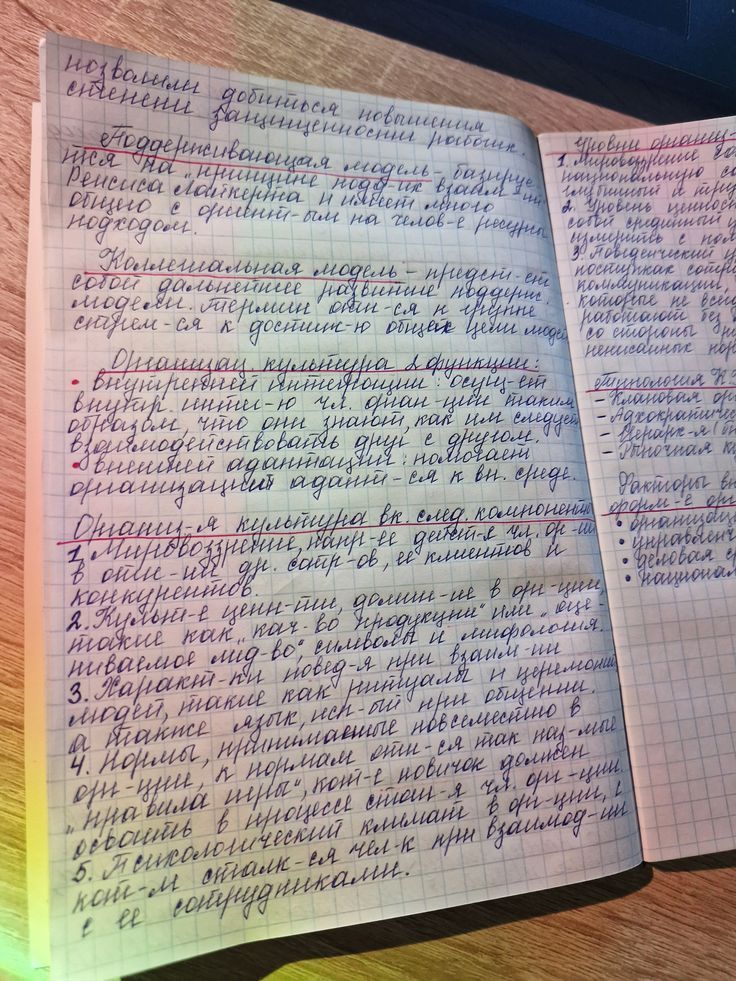 позволили добиться повышения
степени защищенности работник.
Поддерживающая модель - базирует-
тся на "принципе подд-ик взаим-ий"
Ренсиса Лайкерта и имеет много
общего с ориент-ым на челов-е ресурсы
подходом.
Коллегиальная модель - предст-ет
собой дальнейшее развитие поддерж.
модели. Термин отн-ся к группе
стрем-ся к достиж-ю общей цели людей
Организац культура 2 функции:
• внутренней интеграции: осущ-ет
внутр. интег-ю чл. орган-ции таким
образом, что они знают, как им следует
взаимодействовать друг с другом.
• внешней адаптации: помогает
организации адапт-ся к вн. среде.
Организ-я культура вк. след. компоненты
1. Мировоззрение, напр-ее дейст-я чл. ор-ии
в отн-ии др. сотр-ов, ее клиентов и
конкурентов.
2. Культ-е ценн-ти, домин-ие в орг-ции,
такие как "кач-во продукции" или "оце-
ниваемое лид-во", символы и мифология.
3. Характ-ки повед-я при взаим-ии
людей, такие как ритуалы и церемонии
а также язык, исп-ый при общении.
4. Нормы, принимаемые повсеместно в
орг-ции, к нормам отн-ся так наз-мые
"правила игры", кот-е новичок должен
освоить в процессе стан-я чл. орг-ции.
5. Психологический климат в орг-ции, с
кот-м сталк-ся чел-к при взаимод-ии
с ее сотрудниками.
Уровни организ-
1. Мировоззрение
национальную со
глубинный и тру
2. Уровень ценност
собой срединный
измерить с пом
3. Поведенческий
поступках сотр
коммуникации,
которые не всег
работают без
со стороны
неписанных нор
Типология К
- Клановая орг
- Адхократичес
- Иерарх-я
- Рыночная к
Факторы вн
форм-е орг
• организац
• управленч
• деловая с
• национал